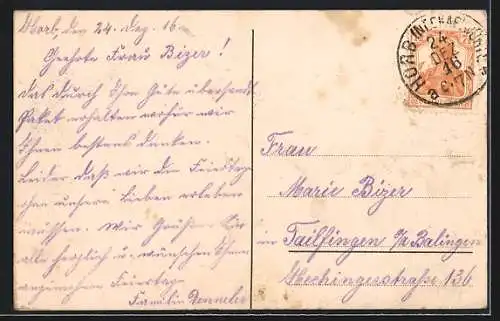 Horb, den 24. Dez. 16.
Geehrte Frau Bizer!
das durch Ihre Güte übersandte
Paket erhalten wofür wir
Ihnen bestens danken.
Leider daß wir die Feiertage
ohne unsere Lieben erleben
müssen. Wir Grüßen Sie
alle herzlich u. wünschen Ihnen
angenehme Feiertage
Familie
HORB (NECKAR)
24
DEZ
16
Frau
Marie Bizer
in Tailfingen O/A Balingen
Hechingerstraße 136